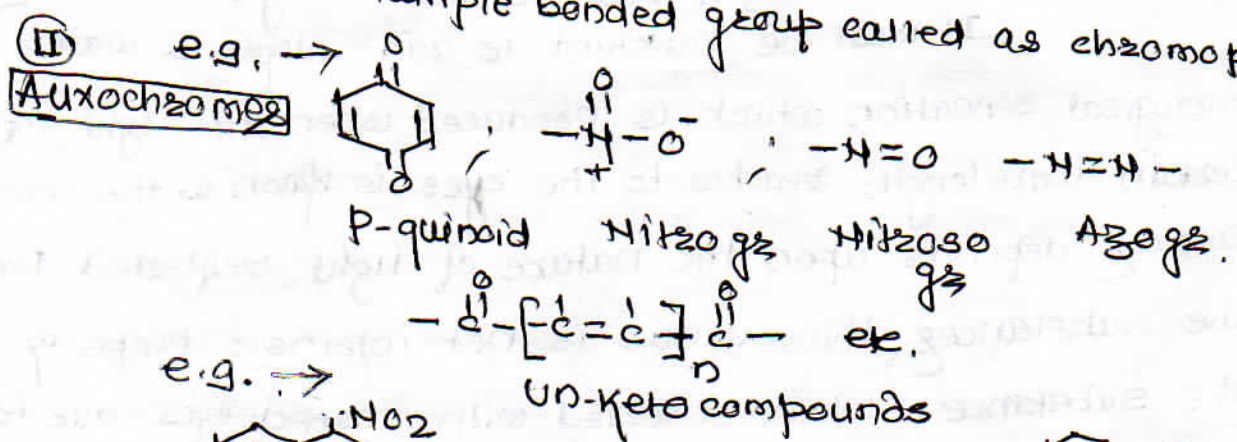 ample bonded group called as chromop
II e.g. →
Auxochromes
O
O
O
-N-O⁻
+
-N=O
-N=N
P-quinoid Nitro gr Nitroso gr Azo gr.
O O
-C-[-C=C-]n C- etc.
e.g. → un-keto compounds
NO2